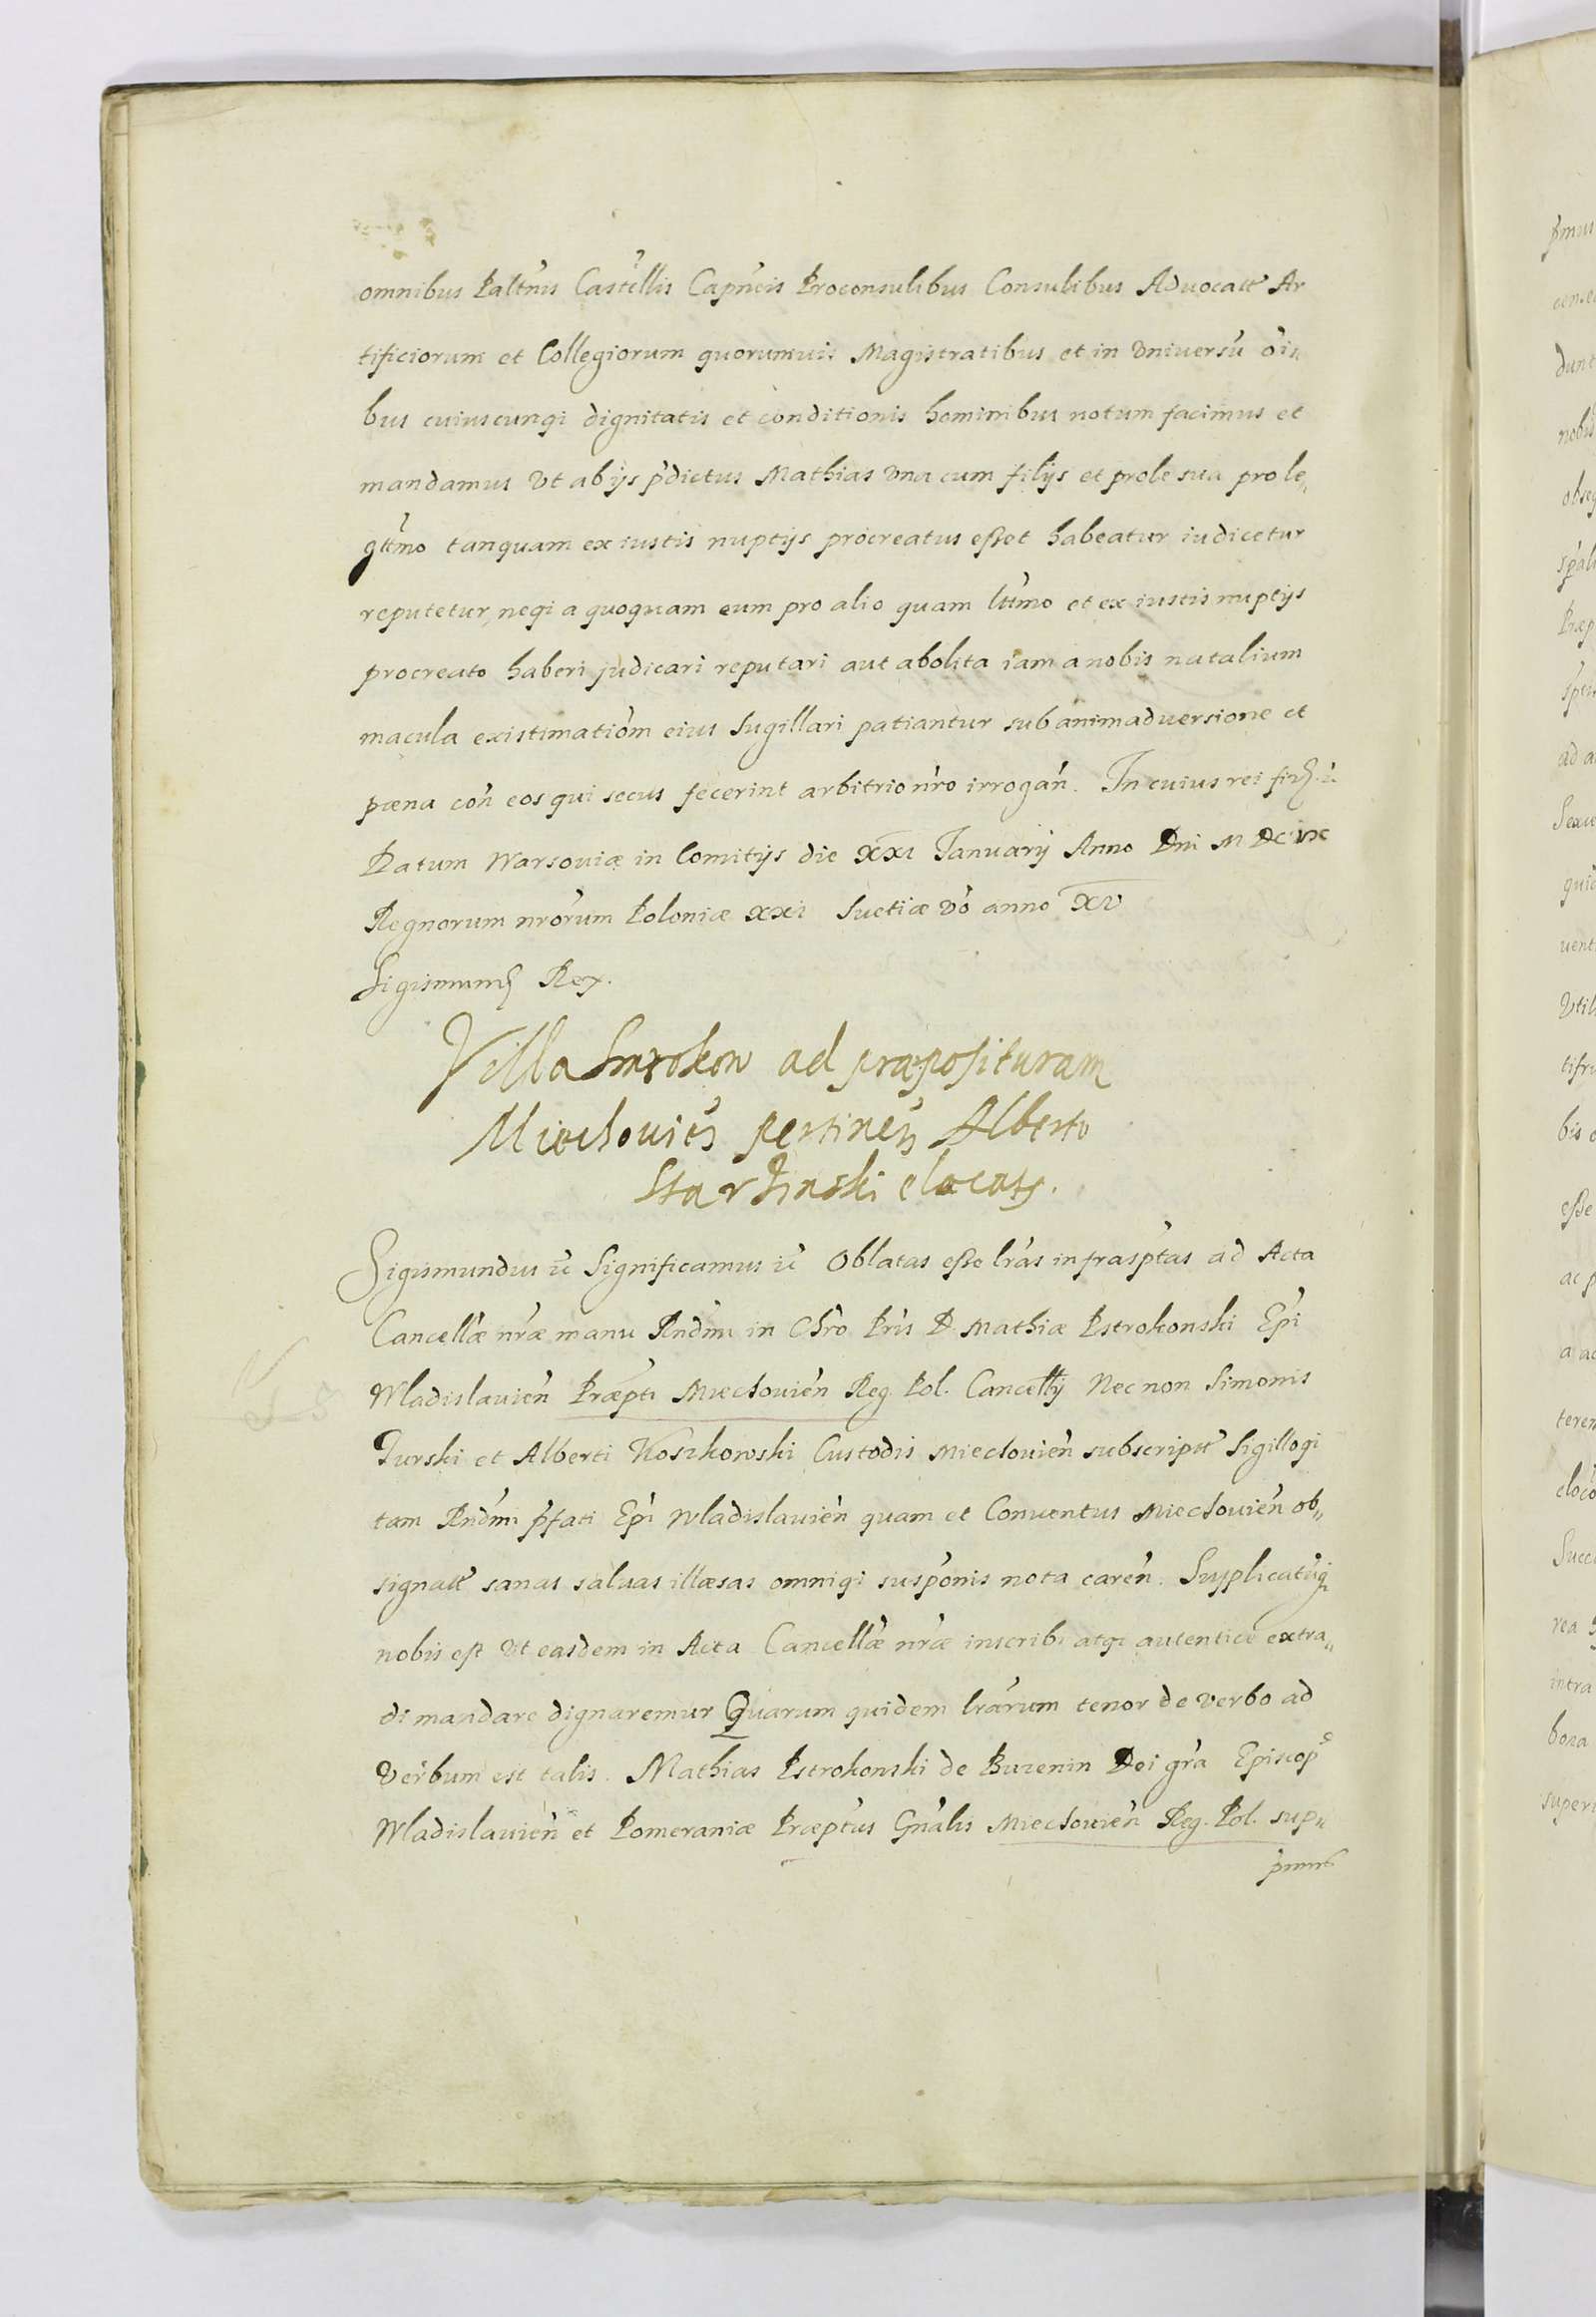 omnibus Palt̃nis Castellis Capñeis Proconsulibus Consulibus Aduocatt Ar
tificiorum et Collegiorum quorumuis Magistratibus et in vniversũ õi„
bus cuiuscunqi dignitatis et conditionis hominibus notum facimus et
mandamus Vt ab ijs p̃dictus Mathias vna cum filijs et prole sua pro le„
gttmo tanquam ex iustis nuptijs procreatus esset habeatur iudicetur
reputetur, neqi a quoquam eum pro alio quam lttmo et ex iustis nuptijs
procreato haberi judicari reputari aut abolita iam a nobis natalium
macula existimatiõm eius sugillari patiantur sub animaduersione et
pœna coñ eos qui secus fecerint arbitrio ñro irrogañ. In cuius rei fid
Datum Warsouiæ in Comitijs die XXI Januarij Anno Dni M DC IX
Regnorum nrõrum Poloniæ XXI Suetiæ võ anno XV
Sigismund Rex.
Villa Smrokow ad præposituram
Miechouień pertineń Alberto
Starzinski elocatr.
Sigismundus ẽ Significamus ẽ Oblatas esse lrãs infrasptas ad Acta
Cancellæ ñræ manu Rndmi in Chro Pris D. Mathiæ Pstrokonski Epi
Wladislauień Præpti Miechouień Reg. Pol. Cancellij Nec non Simonis
Turski et Alberti Koszkowski Custodis Miechouień subscriptt Sigilloqi
tam Rndmi p̃fati Epi Wladislauień quam et Conuentus Miechouień ob„
signatt sanas saluas illæsas omniqi suspõnis nota careñ. Supplicatũqi
nobis est Vt easdem in Acta Cancellæ ñræ inscribi atqi autentice extra„
di mandare dignaremur Quarum quidem lrãrum tenor de verbo ad
verbum est talis. Mathias Pstrokonski de Buzenin Dei grã Episcop9
Wladislauień et Pomeraniæ Præptus Gñalis Miechouień Reg. Pol. sup„